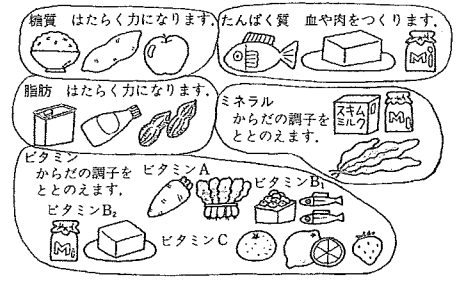 糖質 はたらく力になります.
たんぱく質 血や肉をつくります.
M
脂肪 はたらく力になります.
ミネラル
からだの調子を
ととのえます.
スキム
ミルク
M
ビタミン
からだの調子を
ととのえます.
ビタミンA
ビタミンB₁
ビタミンB₂
M
ビタミンC